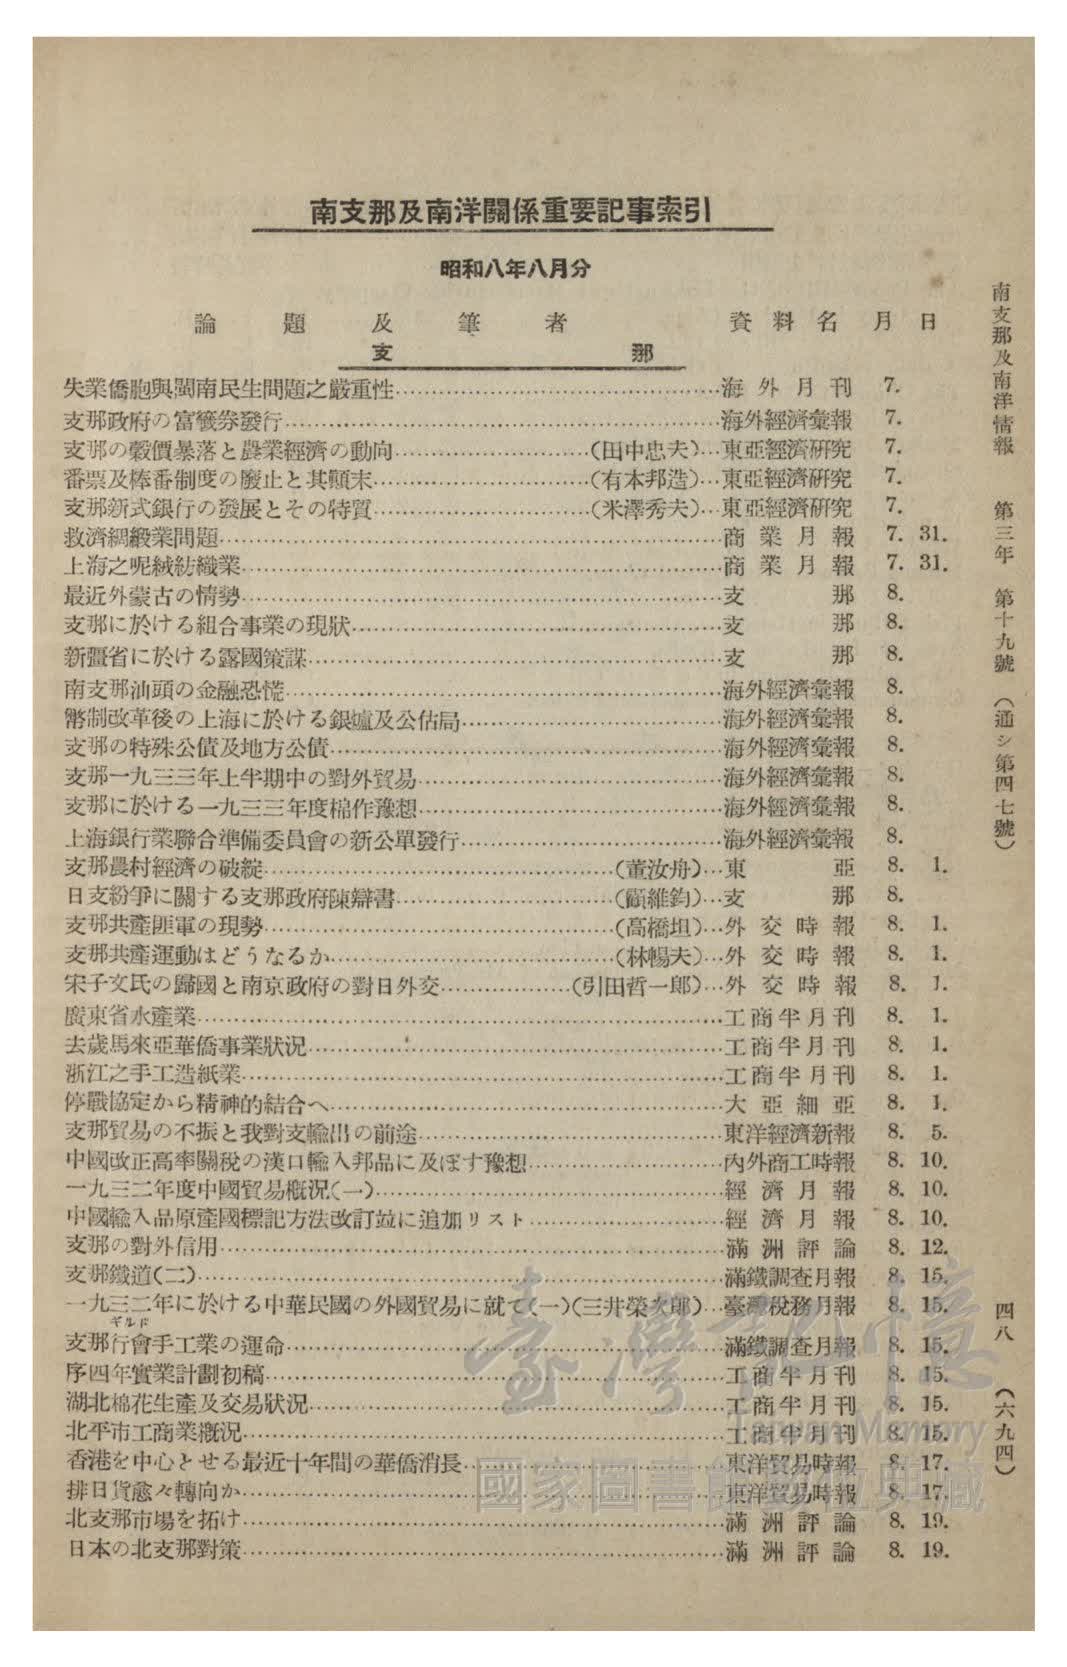 南支那及南洋關係重要記事索引
昭和八年八月分
論題及筆者 資料名 月 日
支那
失業僑胞與閩南民生問題之嚴重性……海外月刊 7.
支那政府の富籤券發行……海外經濟彙報 7.
支那の穀價暴落と農業經濟の動向……(田中忠夫)…東亞經濟研究 7.
番票及棒番制度の廢止と其顚末……(有本邦造)…東亞經濟研究 7.
支那新式銀行の發展とその特質……(米澤秀夫)…東亞經濟研究 7.
救濟綢緞業問題……商業月報 7. 31.
上海之呢絨紡織業……商業月報 7. 31.
最近外蒙古の情勢……支那 8.
支那に於ける組合事業の現狀……支那 8.
新疆省に於ける露國策謀……支那 8.
南支那汕頭の金融恐慌……海外經濟彙報 8.
幣制改革後の上海に於ける銀爐及公估局……海外經濟彙報 8.
支那の特殊公債及地方公債……海外經濟彙報 8.
支那一九三三年上半期中の對外貿易……海外經濟彙報 8.
支那に於ける一九三三年度棉作豫想……海外經濟彙報 8.
上海銀行業聯合準備委員會の新公單發行……海外經濟彙報 8.
支那農村經濟の破綻……(董汝舟)…東亞 8. 1.
日支紛爭に關する支那政府陳辯書……(顧維鈞)…支那 8.
支那共產匪軍の現勢……(高橋坦)…外交時報 8. 1.
支那共產運動はどうなるか……(林暢夫)…外交時報 8. 1.
宋子文氏の歸國と南京政府の對日外交……(引田哲一郎)…外交時報 8. 1.
廣東省水產業……工商半月刊 8. 1.
去歲馬來亞華僑事業狀況……工商半月刊 8. 1.
浙江之手工造紙業……工商半月刊 8. 1.
停戰協定から精神的結合へ……大亞細亞 8. 1.
支那貿易の不振と我對支輸出の前途……東洋經濟新報 8. 5.
中國改正高率關稅の漢口輸入邦品に及ぼす豫想……內外商工時報 8. 10.
一九三二年度中國貿易槪況(一)……經濟月報 8. 10.
中國輸入品原產國標記方法改訂竝に追加リスト……經濟月報 8. 10.
支那の對外信用……滿洲評論 8. 12.
支那鐵道(二)……滿鐵調查月報 8. 15.
一九三二年に於ける中華民國の外國貿易に就て(一)(三井榮次郎)…臺灣稅務月報 8. 15.
ギルド
支那行會手工業の運命……滿鐵調查月報 8. 15.
序四年實業計劃初稿……工商半月刊 8. 15.
湖北棉花生產及交易狀況……工商半月刊 8. 15.
北平市工商業概況……工商半月刊 8. 15.
香港を中心とせる最近十年間の華僑消長……東洋貿易時報 8. 17.
排日貨愈々轉向か……東洋貿易時報 8. 17.
北支那市場を拓け……滿洲評論 8. 19.
日本の北支那對策……滿洲評論 8. 19.
南支那及南洋情報 第三年 第十九號 (通シ第四七號) 四八 (六九四)
臺灣記憶
Taiwan Memory
國家圖書館數位典藏